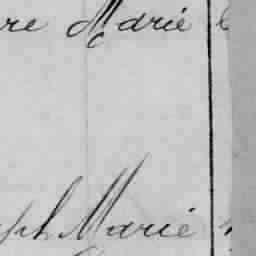 re Marie
ph Marie